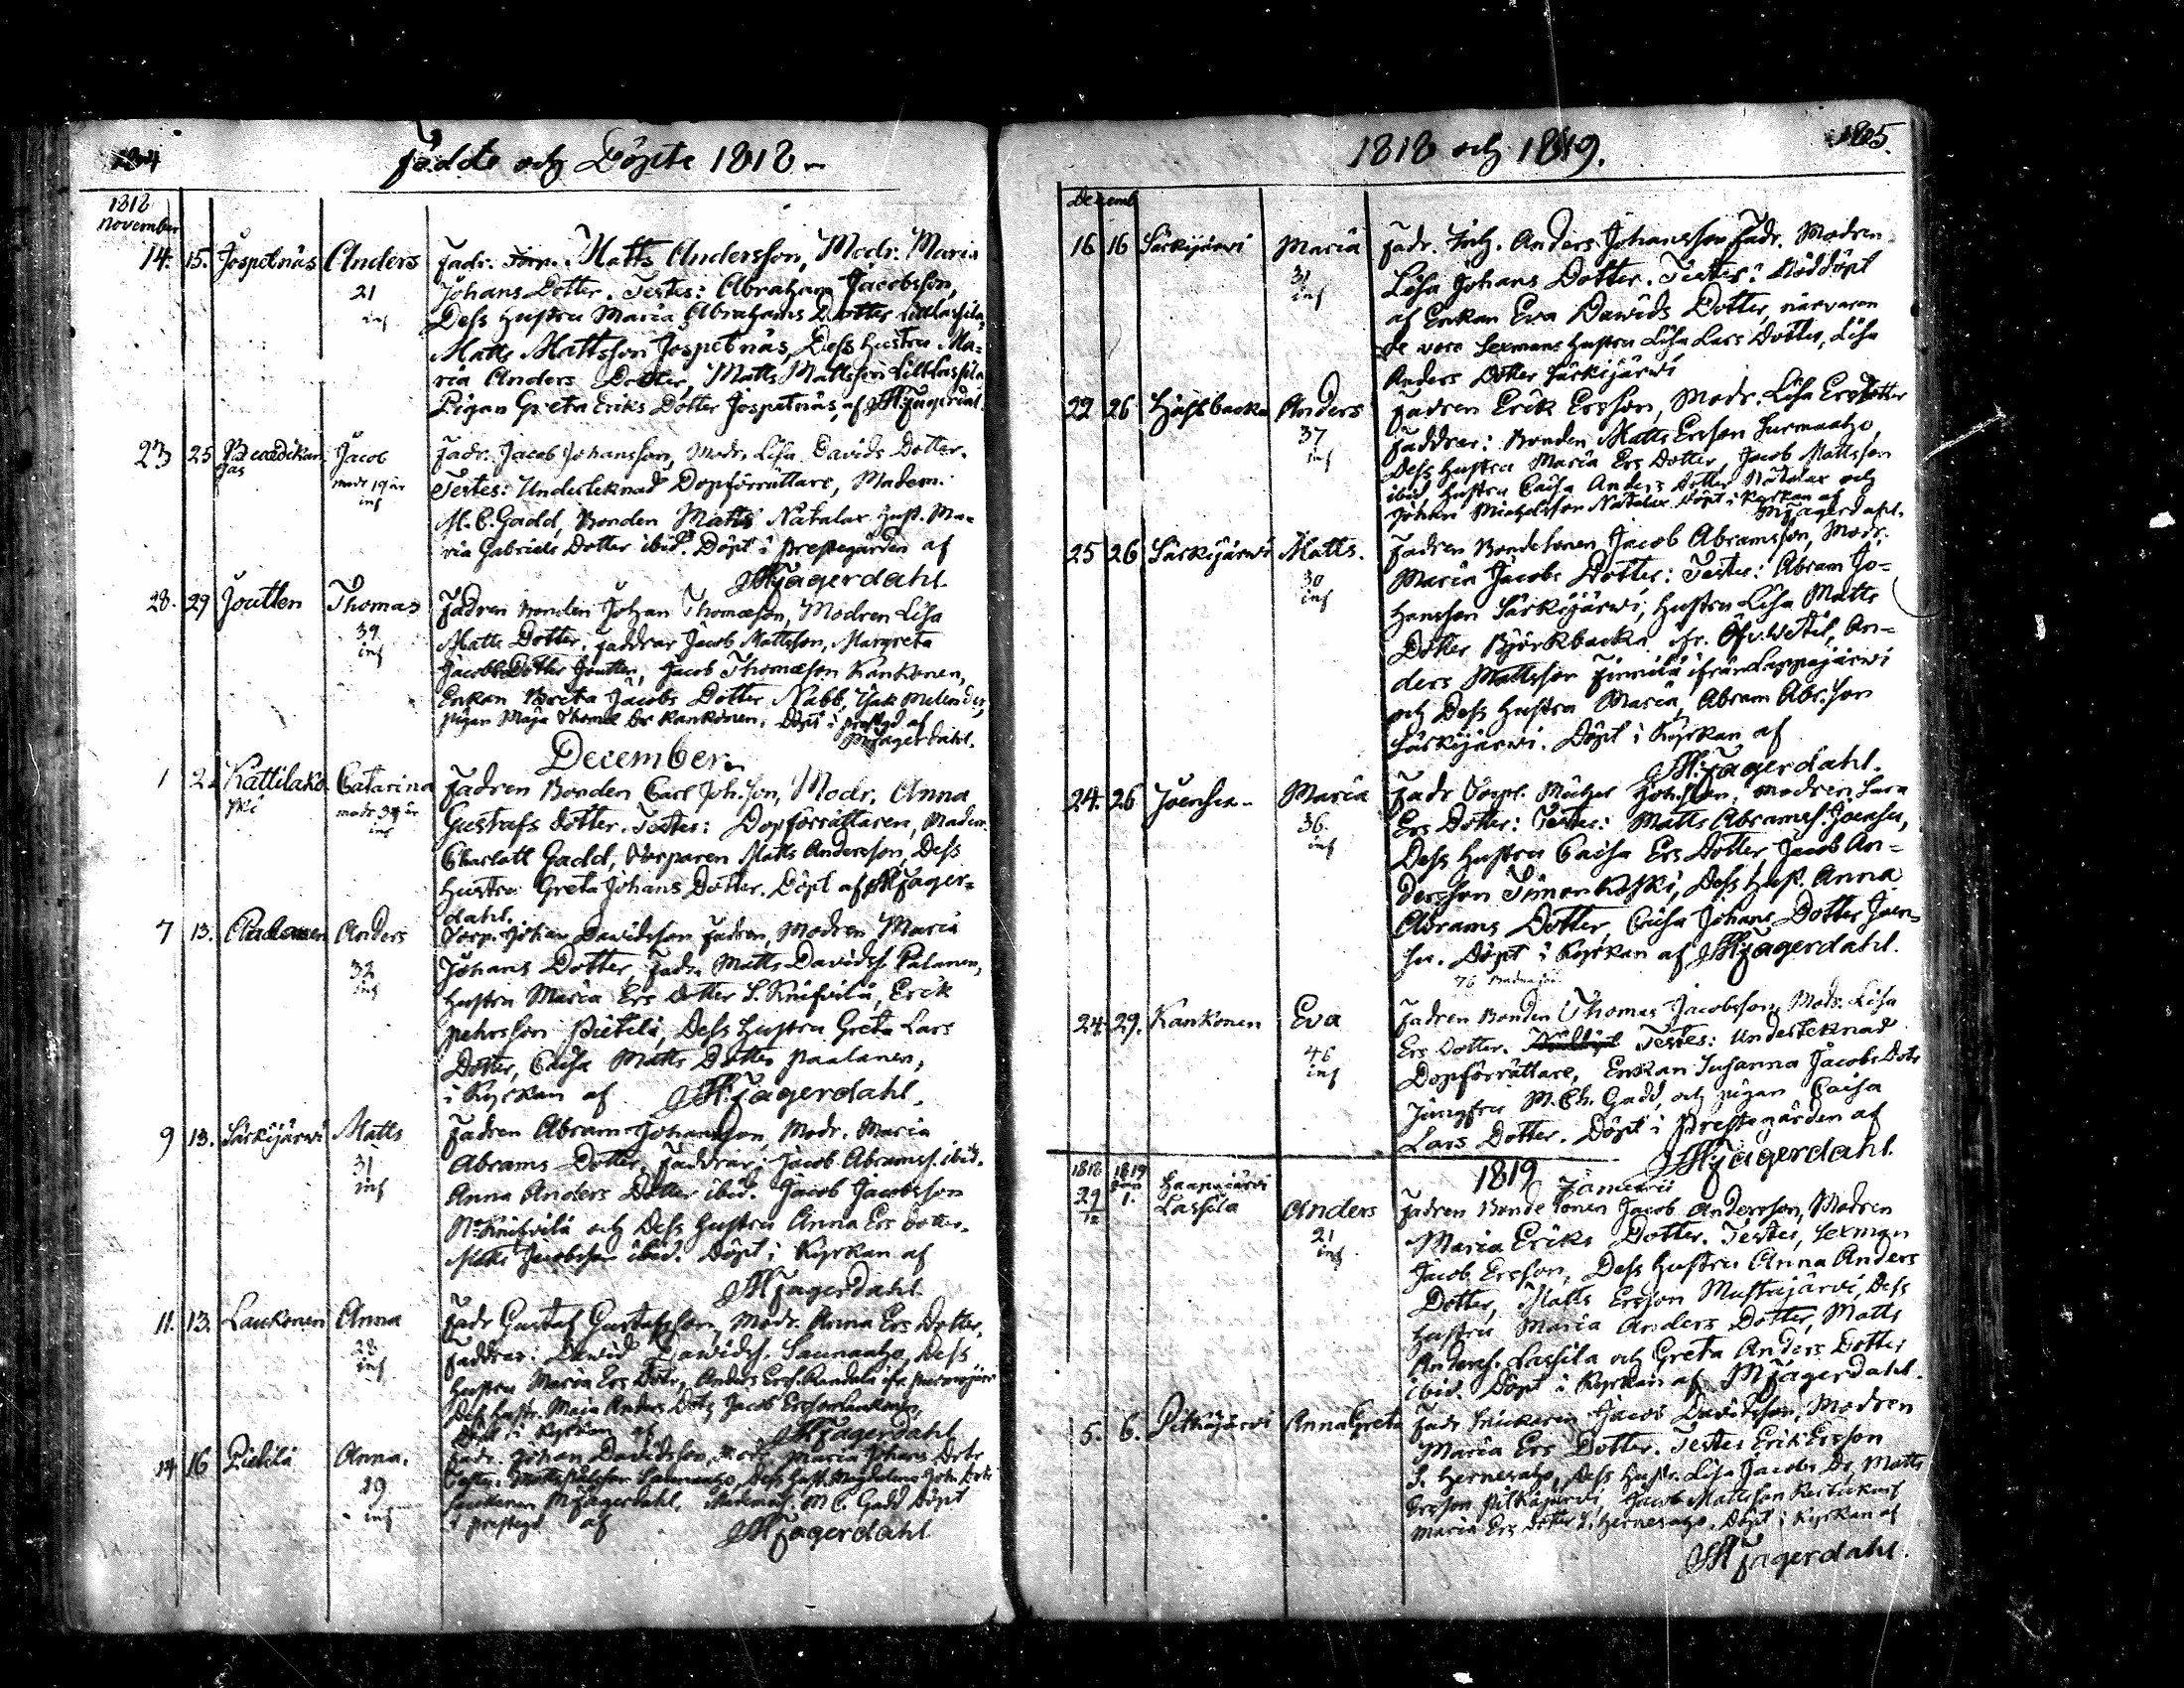 Födde och Döpte 1818
1818
November
14. 15. Jospetnäs Anders Fadr. Matts Andersson, Modr. Maria
21 Johans Dotter. Testes: Abraham Jacobsson,
inf Dess Hustru Maria Abrahams Dotter Lill Lassila,
Matts Mattsson Jospetnäs, Dess Hustru Ma-
ria Anders Dotter, Matts Mattsson Lill Lassila
Pigan Greta Eriks Dotter Jospetnäs, af
23 25 Jacob Fadr. Jacob Johansson, Modr. Lisa Davids Dotter.
modr 19 år Testes: Underteknad Dopförrättare, Madem.
inf M. C. Gadd, Bonden Matts Natalax Hust. Ma-
ria Gabriels Dotter ibid. Döpt i prestegården af
Fagerdahl.
28. 29 Joutten Thomas Fadren Bonden Johan Thomasson, Modren Lisa
39 Matts Dotter. Faddrar Jacob Mattsson, Margreta
inf Jacobs Dotter Joutten, Jacob Thomasson Kankonen,
Enkan Breta Jacobs Dotter Nabb, Isak
pigan Maja Kankonen. Döpt i prestgd af
Fagerdahl.
December
1 2 Kattilako Catarina Fadren Bonden Carl Joh.son, Modr. Anna
ski modr 34 år Gustafs dotter. Testes: Dopförrättaren, Madem.
inf Charlott Gadd, Torparen Matts Andersson, Dess
Hustru Greta Johans Dotter. Döpt af Fager-
dahl.
7 13. Anders Torp. Johan Davidsson Fadren, Modren Maria
32 Johans Dotter, Fadr. Matts Davidss. Palanen,
inf Hustru Maria Ers Dotter S. Knifvilä, Erik
Pehrsson Pietilä, Dess Hustru Greta Lars
Dotter, Caisa Matts Dotter Paalanen,
i Kyrkan af Fagerdahl.
9 13. Särkijärwi Matts Fadren Abram Johansson, Modr. Maria
31 Abrams Dotter, Faddrar: Jacob Abramss. ibid.
inf Anna Anders Dotter ibid. Jacob Jacobsson
N. Knifvilä och Dess Hustru Anna Ers Dotter.
Matts Jacobsson ibid. Döpt i Kyrkan af
Fagerdahl.
11. 13. Laukonen Anna Fadr Gustaf Gustafsson, Modr. Anna Ers Dotter.
28 Faddrar: David Davidss. Saunaaho, Dess
inf Hustru Maria Ers Dotr, Anders Erss.
Dess Hustr. Maria Anders Dotr, Jacob Ersson Laukonen,
Döpt i Kyrkan af Fagerdahl
14 16 Pietilä Anna. Fadr. Johan Davidsson, Modr Maria Johans Dotr
29 Saunaaho, Dess Hust. Magdalena Joh. Dotr
inf Fagerdahl. M. C. Gadd Döpt
i prestegd af Fagerdahl
1818 och 1819. 185.
Decemb
16 16 Särkijärwi Maria Fadr. Anders Johansson Fadr. Modren
31 Lisa Johans Dotter. Testes: Nöddöpt
inf af Enkan Eva Davids Dotter, närvaran
de voro Sexmans Hustru Lisa Lars Dotter, Lisa
Anders Dotter Särkijärwi
22 26 Högbacka Anders Fadren Erik Ersson, Modr. Lisa Ers Dotter
37 Faddrar: Bonden Matts Ersson
inf Dess Hustru Maria Ers Dotter, Jacob Mattsson
ibid, Hustru Caisa Anders Dotter Natalax och
Johan Michelsson Natalax. Döpt i Kyrkan af
Fagerdahl.
25 26 Särkijärwi Matts. Fadren Bondesonen Jacob Abramsson, Modr.
30 Maria Jacobs Dotter: Testes: Abram Jo-
inf hansson Särkijärwi, Hustru Lisa Matts
Dotter Björkbacka ifr. Öfv. Wetil, An-
ders Mattsson Finnilä ifrån Lappajärwi
och Dess Hustru Maria, Abram Abr.son
Särkijärwi. Döpt i Kyrkan af
Fagerdahl.
24. 26 Joensu Maria Fadr Torpr. Michel Joh.son, modren Sara
36. Ers Dotter: Testes: Matts Abramss. Joensu,
inf Dess Hustru Caisa Ers Dotter, Jacob An-
dersson Timonkoski, Dess Hust. Anna
Abrams Dotter, Caisa Johans Dotter Joen-
su. Döpt i Kyrkan af Fagerdahl.
24. 29. Kankonen Eva Fadren Bonden Thomas Jacobsson, Modr. Lisa
46 Ers Dotter. Testes: Underteknad
inf Dopförrättare, Enkan Susanna Jacobs Dotr
Jungfru M. Ch. Gadd, och pigan Caisa
Lars Dotter. Döpt i Prestegården af
Fagerdahl.
1819 Januarii
1818 1819
29/12 1. Haapajärvi
Lassila Anders Fadren Bondesonen Jacob Andersson, Modren
21 Maria Eriks Dotter. Testes, Sexman
inf Jacob Ersson, Dess Hustru Anna Anders
Dotter, Matts Ersson Mustajärvi, Dess
Hustru Maria Anders Dotter, Matts
Anderss. Lassila och Greta Anders Dotter
ibid. Döpt i Kyrkan af Fagerdahl.
5. 6. Pitkäjärvi Anna Greta Fadr Jacob Davidsson, Modren
Maria Ers Dotter. Testes Erik Ersson
S. Hernesaho, Dess Hustr. Lisa Jacobs Dr, Matts
Ersson Pitkäjärvi, Jacob Mattsson
Maria Ers dotter S. Hernesaho. Döpt i Kyrkan af
Fagerdahl.